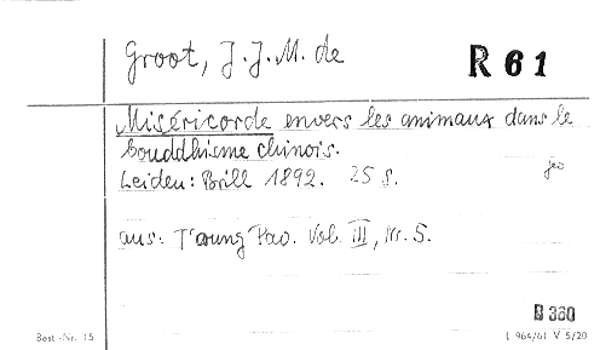 Groot, J.J.M. de
R 61
Miséricorde envers les animaux dans le
bouddhisme chinois.
Leiden: Brill 1892. 25 S.
aus: T'oung Pao. Vol. III, Nr. 5.
B 380
Best.-Nr. 15
I 964/61 V 5/20